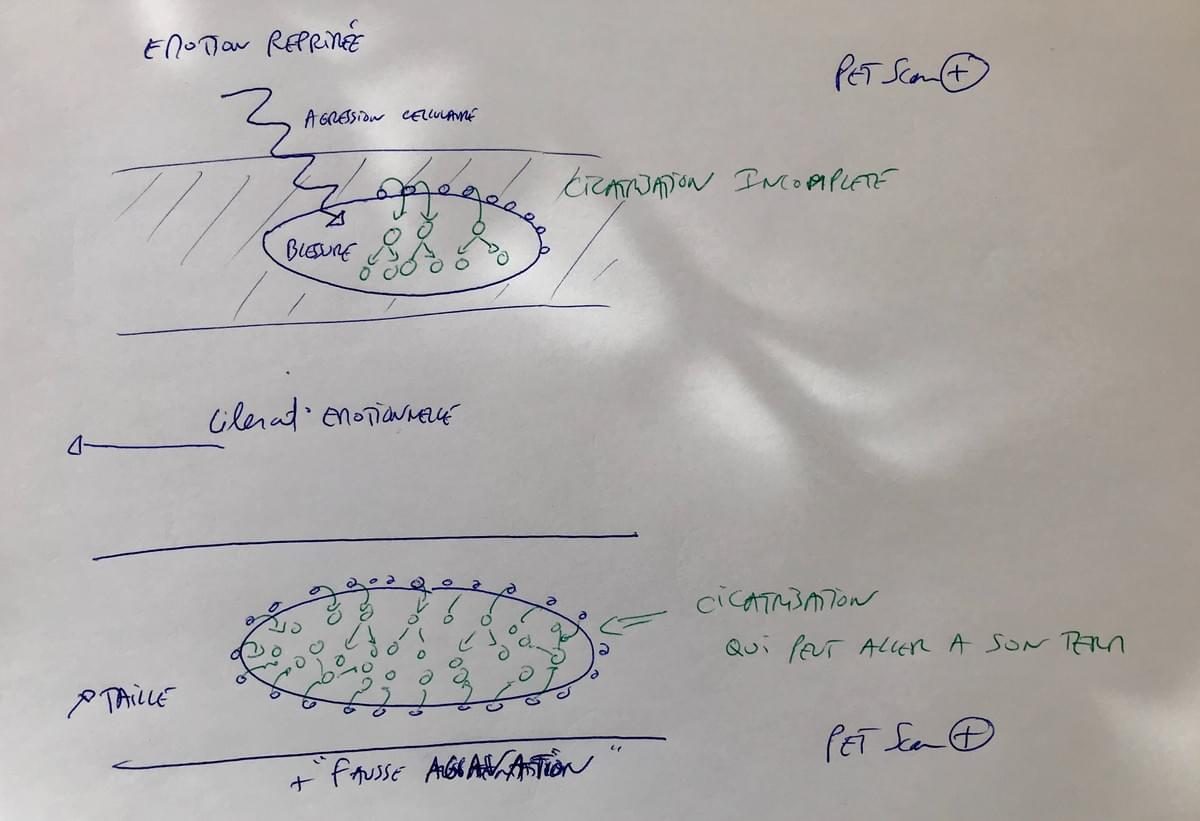 EMOTION REPRIMÉE
PET Scan +
AGRESSION CELLULAIRE
CICATRISATION INCOMPLETE
BLESSURE
Liberat° EMOTIONNELLE
CICATRISATION
QUI PEUT ALLER A SON TERM
↗ TAILLE
PET Scan +
+ "FAUSSE AGGRAVATION"